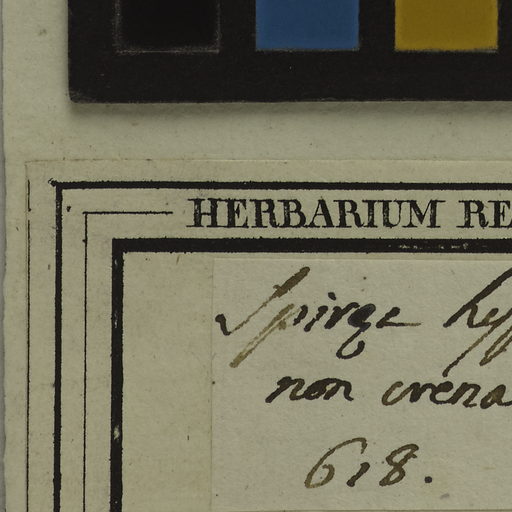 HERBARIUM RE
Spiræ hyp
non crena
618.